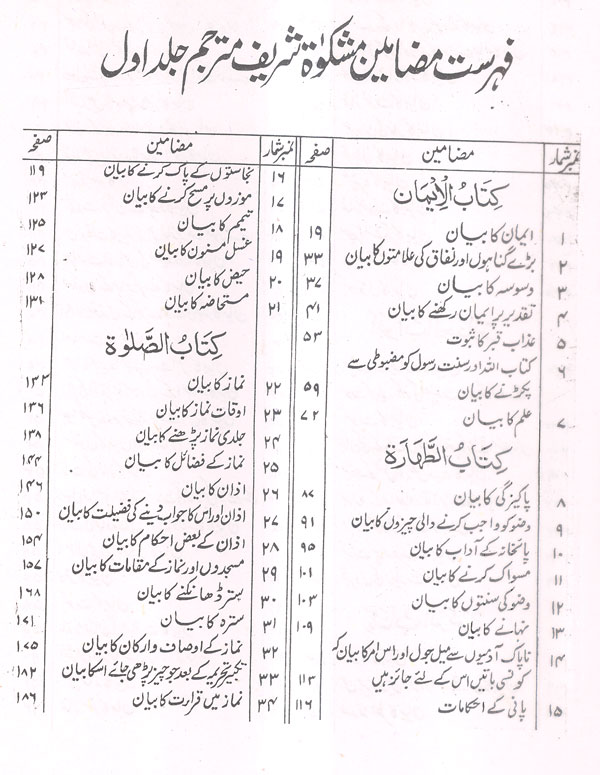 فہرست مضامین مشکوٰۃ شریف مترجم جلد اول
نمبرشمار مضامین صفحہ
کِتَابُ الْاِیْمَان
۱ ایمان کا بیان ۱۹
۲ بڑے گناہوں اور نفاق کی علامتوں کا بیان ۳۳
۳ وسوسہ کا بیان ۳۷
۴ تقدیر پر ایمان رکھنے کا بیان ۴۱
۵ عذاب قبر کا ثبوت ۵۳
۶ کتاب اللہ اور سنت رسول کو مضبوطی سے
پکڑنے کا بیان ۵۹
۷ علم کا بیان ۷۲
کِتَابُ الطَّهَارَة
۸ پاکیزگی کا بیان ۸۷
۹ وضو کو واجب کرنے والی چیزوں کا بیان ۹۱
۱۰ پائخانہ کے آداب کا بیان ۹۵
۱۱ مسواک کرنے کا بیان ۱۰۱
۱۲ وضو کی سنتوں کا بیان ۱۰۳
۱۳ نہانے کا بیان ۱۰۹
۱۴ ناپاک آدمیوں سے میل جول اور اس امر کا بیان کہ
کونسی باتیں اس کے لئے جائز ہیں ۱۱۳
۱۵ پانی کے احکامات ۱۱۶
نمبرشمار مضامین صفحہ
۱۶ نجاستوں کے پاک کرنے کا بیان ۱۱۹
۱۷ موزوں پر مسح کرنے کا بیان ۱۲۳
۱۸ تیمم کا بیان ۱۲۵
۱۹ غسل مسنون کا بیان ۱۲۷
۲۰ حیض کا بیان ۱۲۸
۲۱ مستحاضہ کا بیان ۱۳۱
کِتَابُ الصَّلٰوة
۲۲ نماز کا بیان ۱۳۲
۲۳ اوقات نماز کا بیان ۱۳۶
۲۴ جلدی نماز پڑھنے کا بیان ۱۳۸
۲۵ نماز کے فضائل کا بیان ۱۴۴
۲۶ اذان کا بیان ۱۴۶
۲۷ اذان اور اس کا جواب دینے کی فضیلت کا بیان ۱۵۰
۲۸ اذان کے بعض احکام کا بیان ۱۵۴
۲۹ مسجدوں اور نماز کے مقامات کا بیان ۱۵۷
۳۰ ستر ڈھانکنے کا بیان ۱۶۸
۳۱ سترہ کا بیان ۱۷۱
۳۲ نماز کے اوصاف و ارکان کا بیان ۱۷۵
۳۳ تکبیر تحریمہ کے بعد جو چیز پڑھی جائے اسکا بیان ۱۸۲
۳۴ نماز میں قرارت کا بیان ۱۸۶